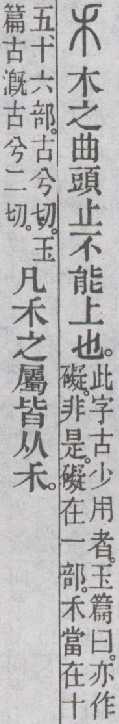 𥝌木之曲頭止不能上也。
此字古少用者。玉篇曰。亦作
礙。非是。礙在一部。𥝌當在十
五十六部。古兮切。玉
篇古漑古兮二切。
凡𥝌之屬皆从𥝌。